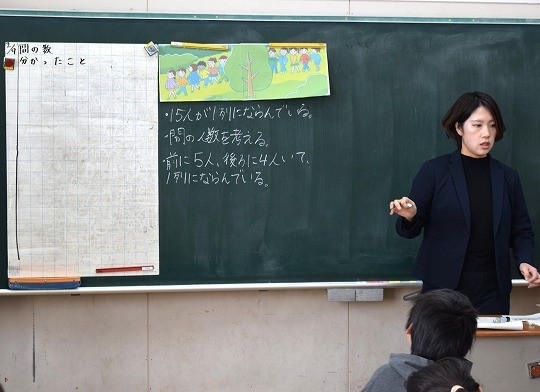 間の数
分かったこと
・15人が1列にならんでいる。
・間の人数を考える。
・前に5人、後ろに4人いて、
1列にならんでいる。